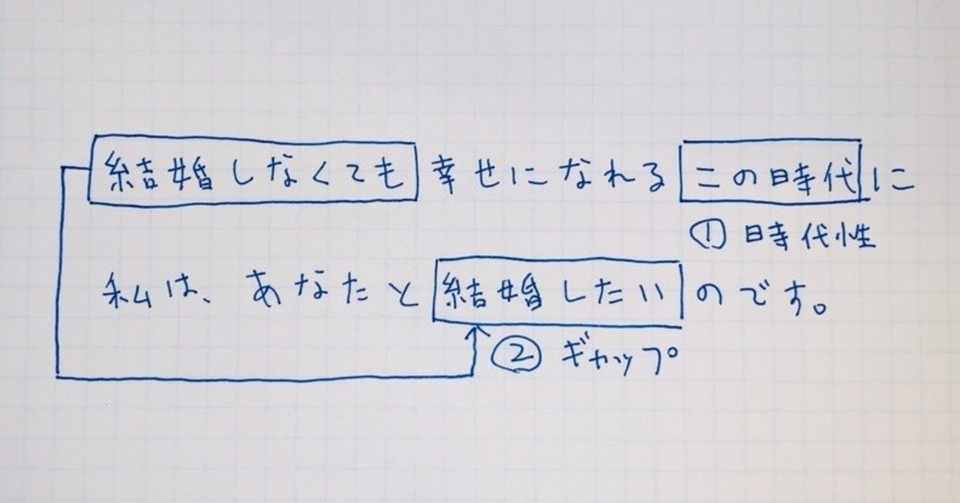 結婚しなくても幸せになれるこの時代に
①時代性
私は、あなたと結婚したいのです。
②ギャップ